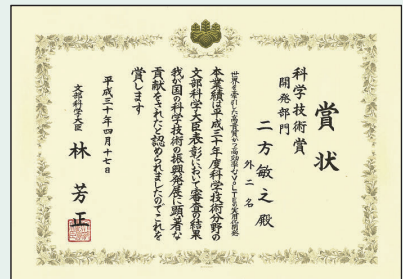 賞状
科学技術賞
開発部門
二方敏之殿
外二名
世界を牽引した高音質かつ高効率なVoLTEの実用化開発
本業績は平成三十年度科学技術分野の
文部科学大臣表彰において審査の結果
我が国の科学技術の振興発展に顕著な
貢献をされたと認められましたのでこれを
賞します
平成三十年四月十七日
文部科学大臣
林芳正